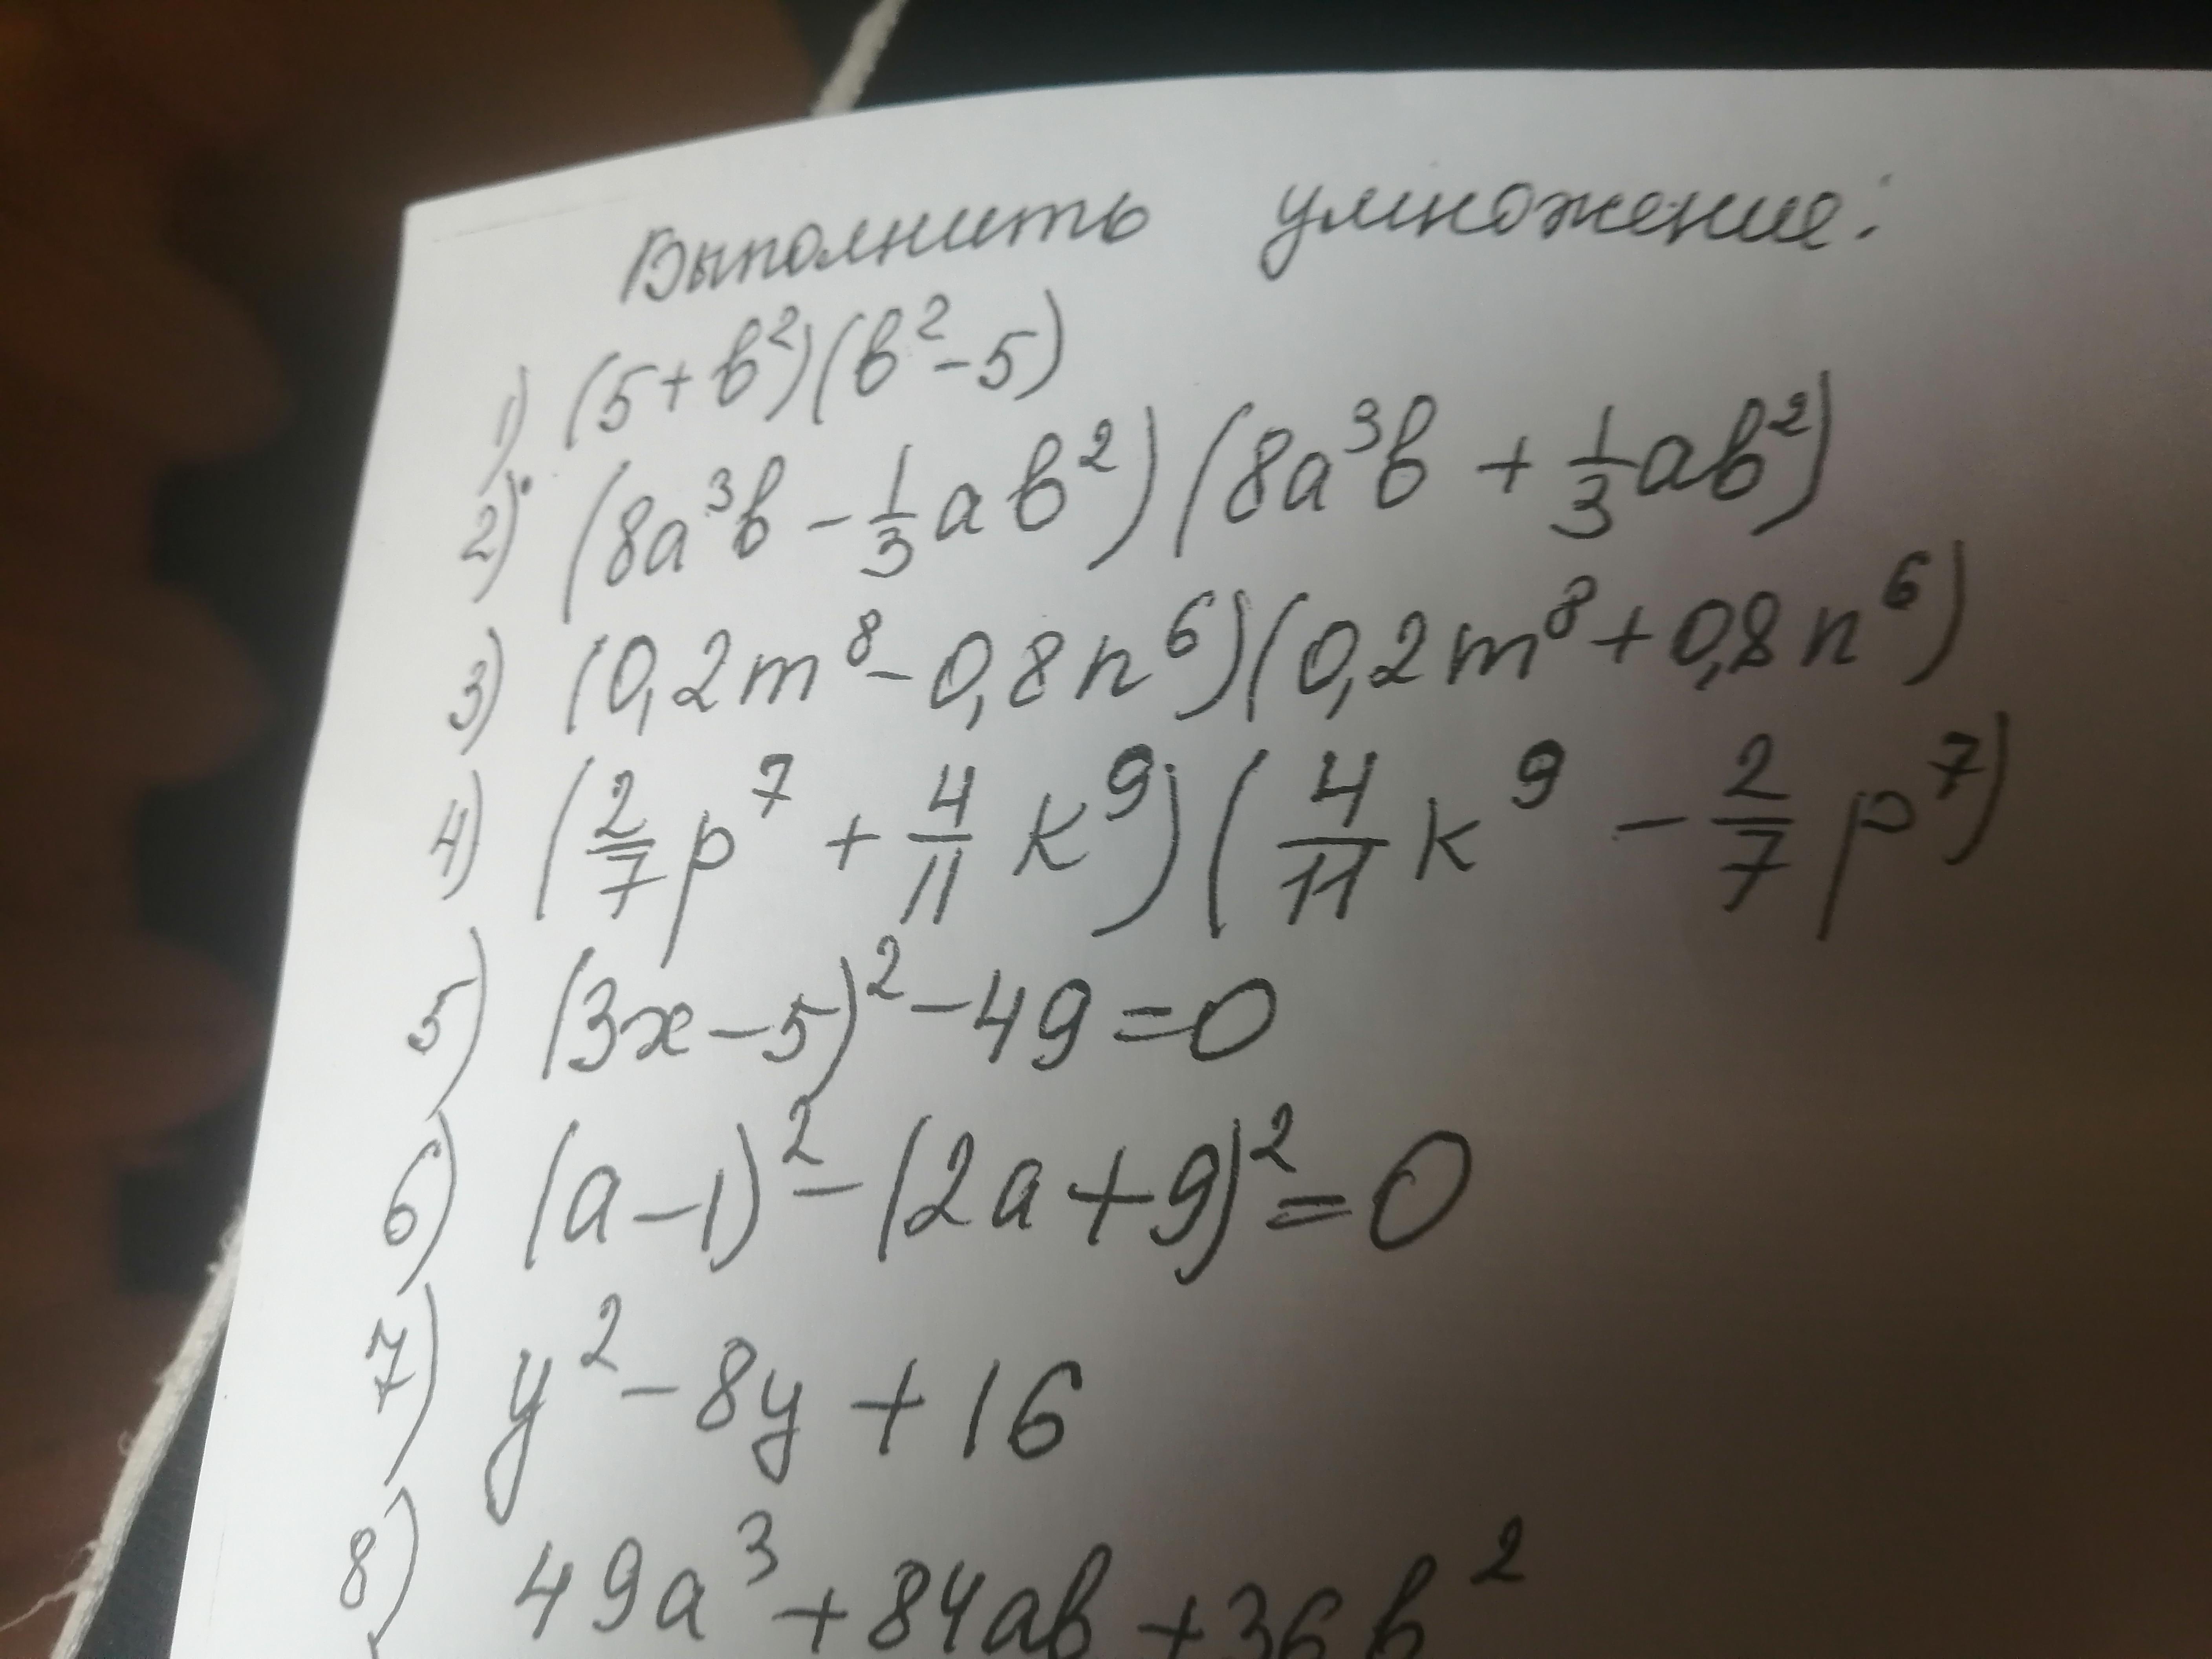 Выполнить умножение:
1) (5+в²)(в²-5)
2) (8а³в - 1/3 ав²)(8а³в + 1/3 ав²)
3) (0,2m⁸-0,8n⁶)(0,2m⁸+0,8n⁶)
4) (2/7 p⁷ + 4/11 k⁹)(4/11 k⁹ - 2/7 p⁷)
5) (3x-5)²-49=0
6) (a-1)²-(2a+9)²=0
7) y²-8y+16
8) 49a³+84ав+36в²